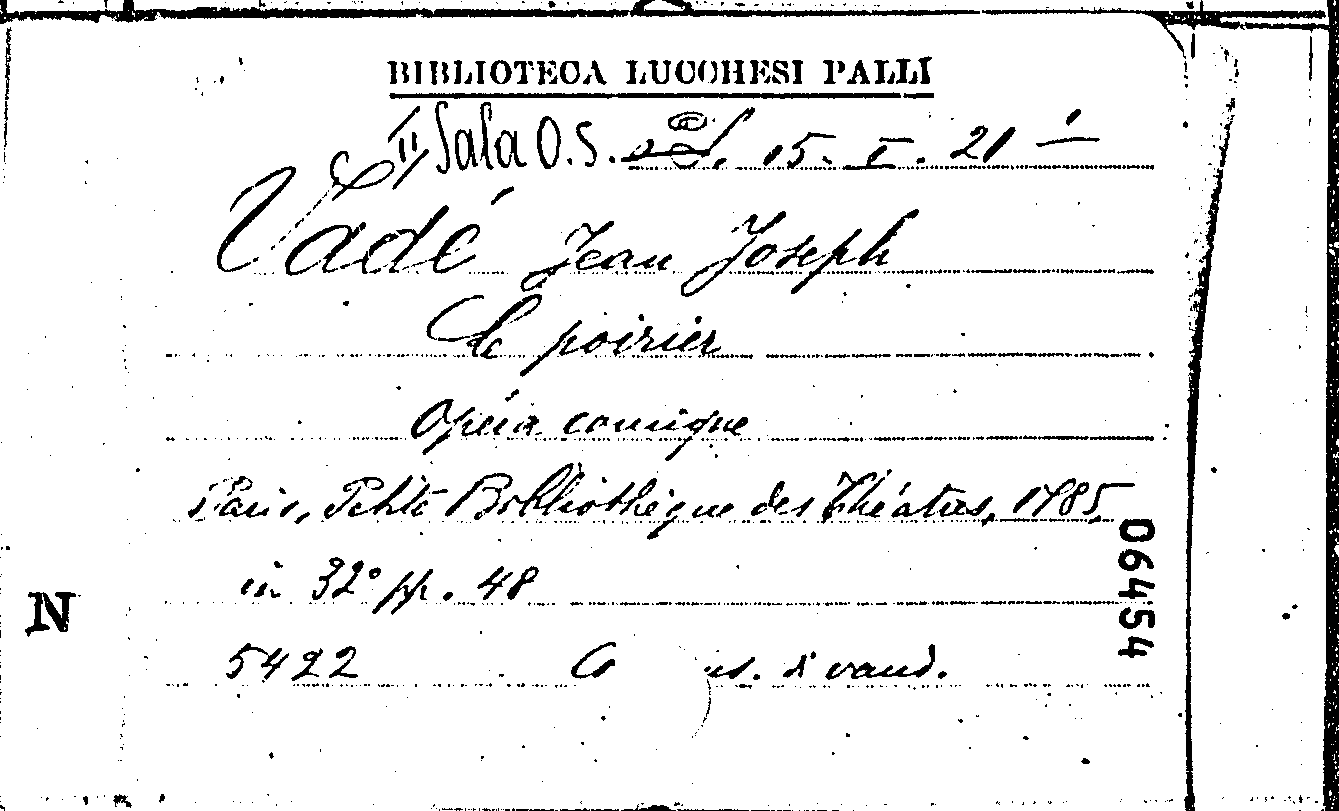 BIBLIOTECA LUCCHESI PALLI
II Sala O.S. 15. I. 21
Vadé Jean Joseph
Le poirier
Opéra comique
Paris, Petite Bibliothèque des Théatres, 1785
in 32° pp. 48
5422 vaud.
06454
N